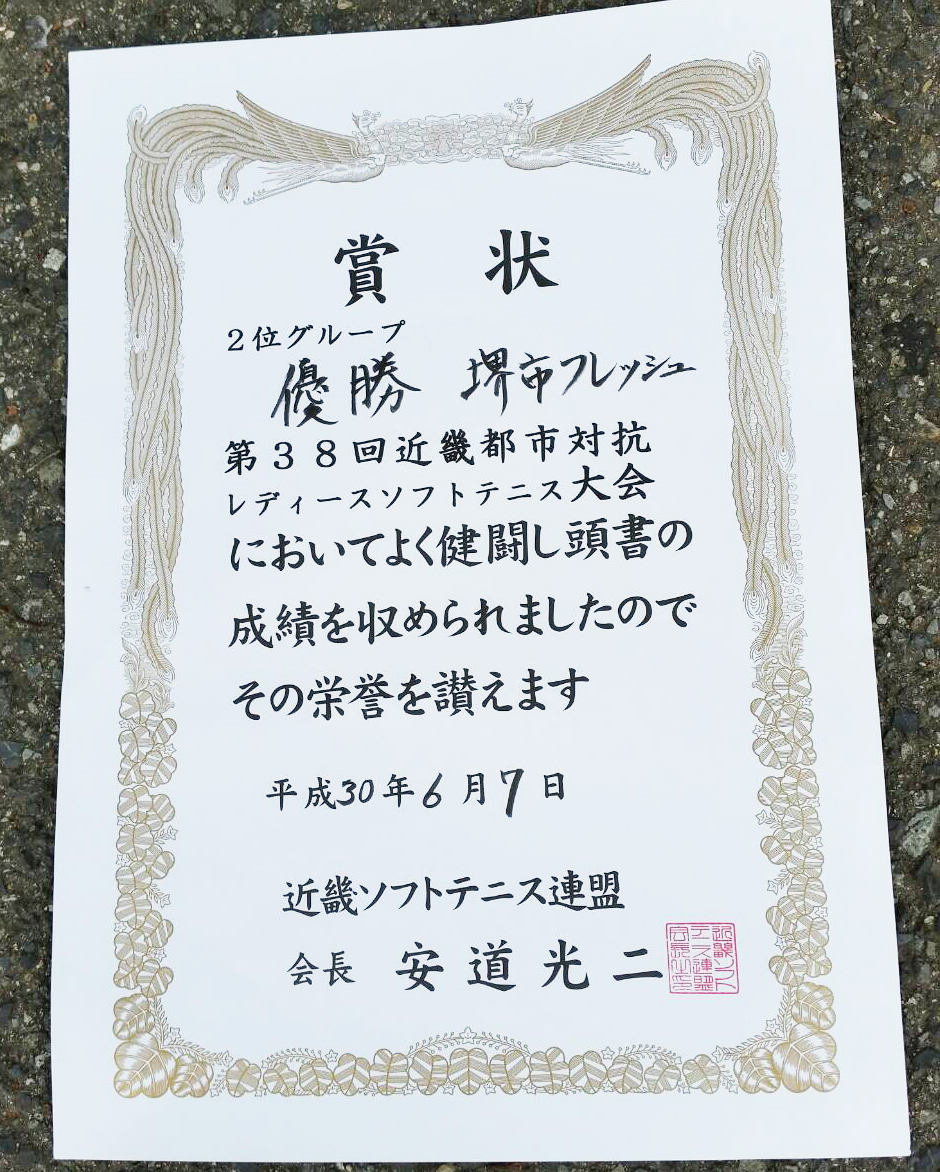 賞状
2位グループ
優勝 堺市フレッシュ
第38回近畿都市対抗
レディースソフトテニス大会
においてよく健闘し頭書の
成績を収められましたので
その栄誉を讃えます
平成30年6月7日
近畿ソフトテニス連盟
会長 安道光二